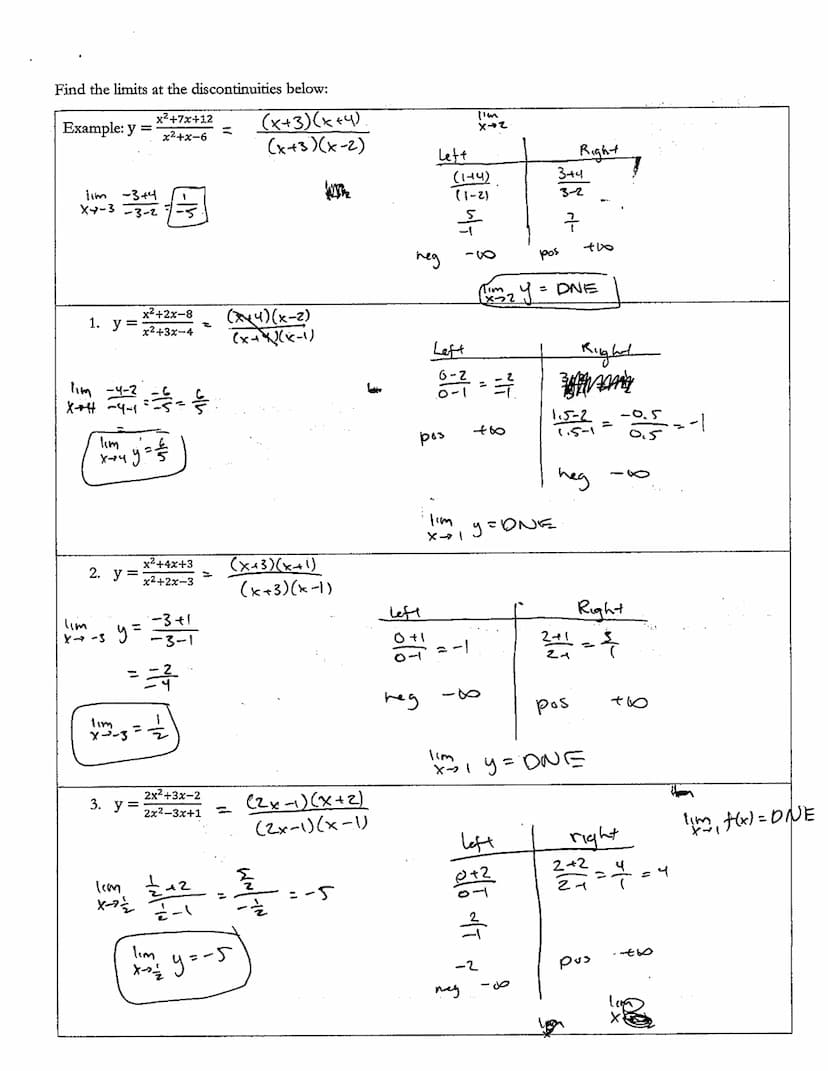 Find the limits at the discontinuities below:
Example: y = x²+7x+12 / x²+x−6 = (x+3)(x+4) / (x+3)(x−2)
lim x→-3 -3+4 / -3-2 = 1 / -5
lim x→2
Left Right
(1+4) / (1-2) 3+4 / 3-2
5 / -1 7 / 1
neg -∞ pos +∞
lim x→2 y = DNE
1. y = x²+2x−8 / x²+3x−4 = (x+4)(x-2) / (x+4)(x-1)
lim x→4 -4-2 / -4-1 = -6 / -5 = 6 / 5
lim x→4 y = 6 / 5
Left Right
0-2 / 0-1 = -2 / -1
1.5-2 / 1.5-1 = -0.5 / 0.5 = -1
pos +∞ neg -∞
lim x→1 y = DNE
2. y = x²+4x+3 / x²+2x−3 = (x+3)(x+1) / (x+3)(x-1)
lim x→-3 y = -3+1 / -3-1
= -2 / -4
lim x→-3 = 1 / 2
Left Right
0+1 / 0-1 = -1 2+1 / 2-1 = 3 / 1
neg -∞ pos +∞
lim x→1 y = DNE
3. y = 2x²+3x−2 / 2x²−3x+1 = (2x-1)(x+2) / (2x-1)(x-1)
lim x→1 f(x) = DNE
lim x→1/2 1/2+2 / 1/2-1 = 5/2 / -1/2 = -5
lim x→1/2 y = -5
left right
0+2 / 0-1 2+2 / 2-1 = 4 / 1 = 4
2 / -1
-2 pos +∞
neg -∞
lim x